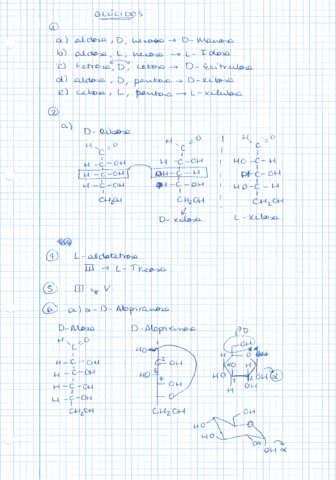 GLÚCIDOS
①
a) aldosa, D, hexosa → D-Manosa
b) aldosa, L, hexosa → L-Idosa
c) tetrosa, D, cetosa → D-Eritrulosa
d) aldosa, D, pentosa → D-Xilosa
e) cetosa, L, pentosa → L-Xilulosa
②
a)
D-Ribosa
H O H O H O
C C C
H-C-OH H-C-OH HO-C-H
H-C-OH OH-C-H H-C-OH
H-C-OH H-C-OH HO-C-H
CH₂OH CH₂OH CH₂OH
D-Xilosa L-Xilosa
④ L-aldotetrosa
III → L-Treosa
⑤ III y V
⑥ a) α-D-Alopiranosa
D-Alosa D-Alopiranosa
H O
C
H-C-OH
H-C-OH
H-C-OH
H-C-OH
CH₂OH
HO
OH
HO
OH
O
CH₂OH
D
OH
HO
OH α
HO
HO
OH
O
OH
OH α